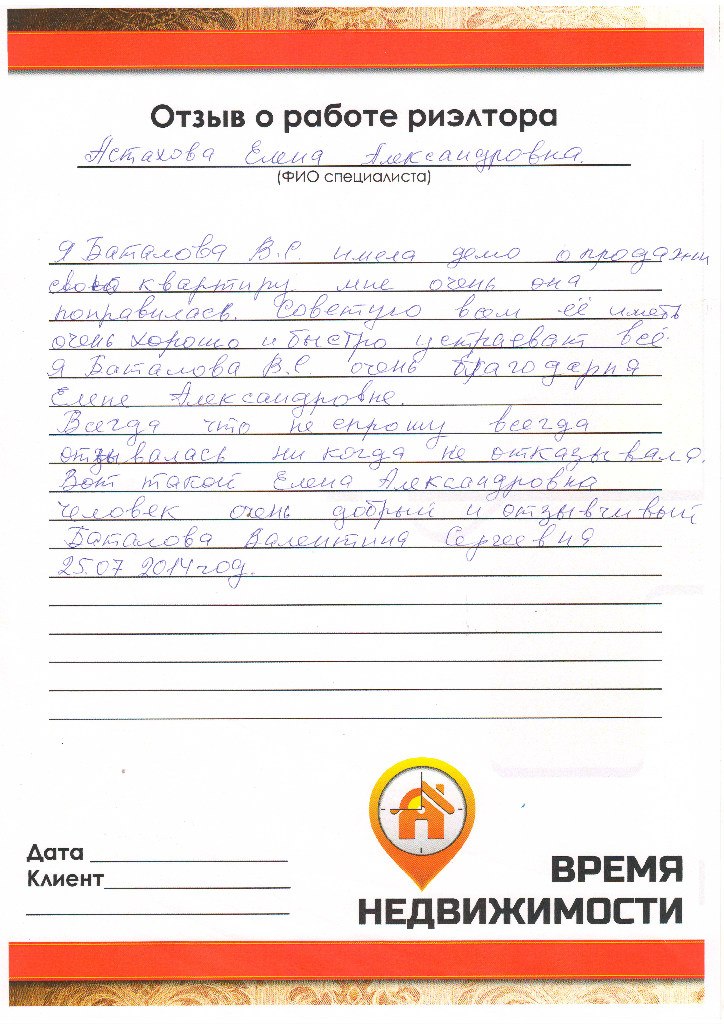 Отзыв о работе риэлтора
Астахова Елена Александровна.
(ФИО специалиста)
Я Баталова В.С. имела дело о продажи
свою квартиру мне очень она
понравилась. Советую всем её иметь
очень хорошо и быстро устраевает всё.
Я Баталова В.С. очень благодарня
Елене Александровне.
Всегда что не спрошу всегда
отзывалась ни когда не отказывала.
Вот такой Елена Александровна
человек очень добрый и отзывчивый
Баталова Валентина Сергеевна
25.07 2014 год.
Дата
Клиент
ВРЕМЯ
НЕДВИЖИМОСТИ